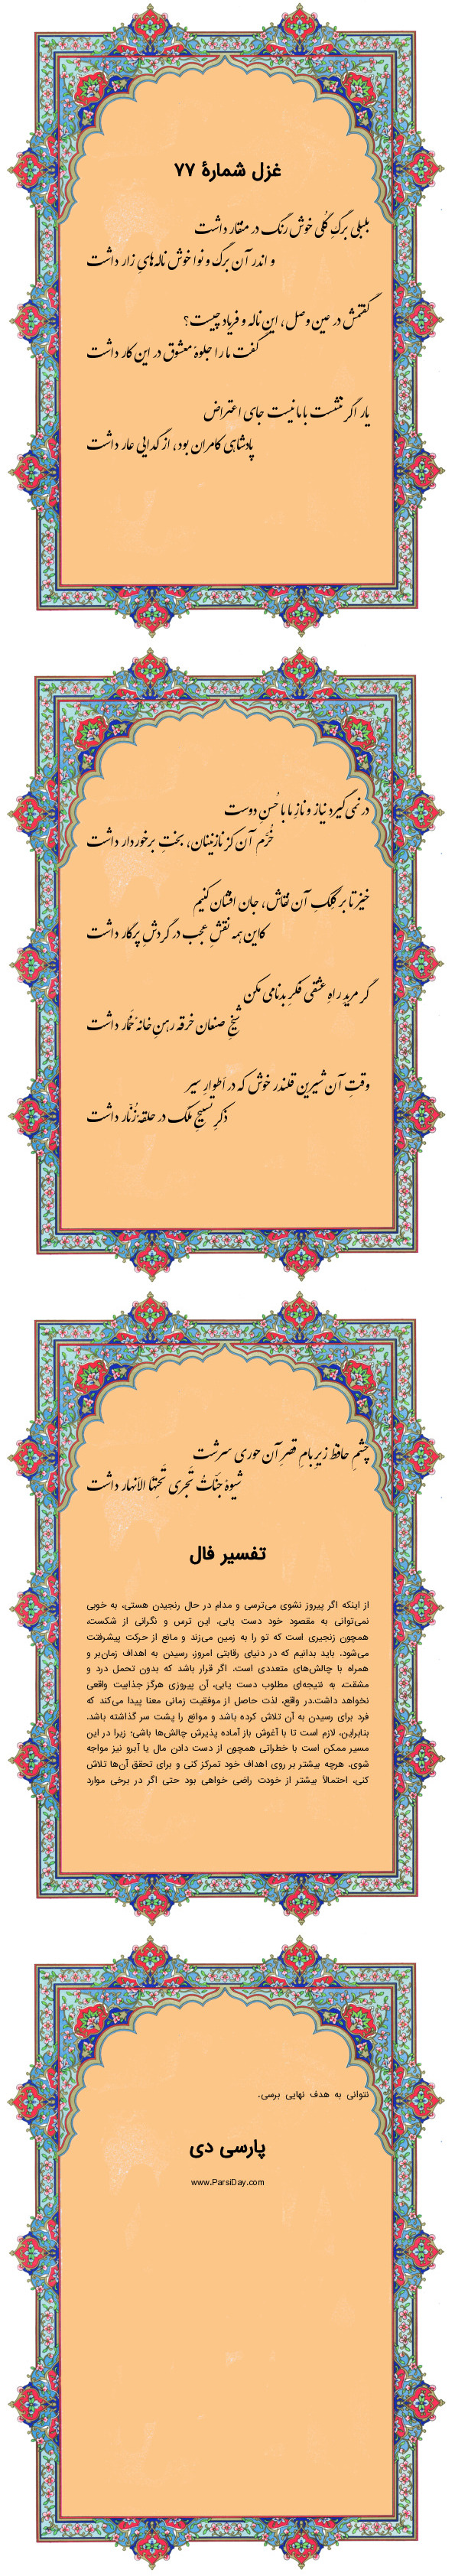 غزل شمارهٔ ۷۷
بلبلی برگِ گُلی خوش رنگ در منقار داشت
و اندر آن برگ و نوا خوش ناله‌هایِ زار داشت
گفتمش در عین وصل، این ناله و فریاد چیست؟
گفت ما را جلوهٔ معشوق در این کار داشت
یار اگر ننشست با ما نیست جای اعتراض
پادشاهی کامران بود، از گدایی عار داشت
در نمی‌گیرد نیاز و نازِ ما با حُسنِ دوست
خُرَّم آن کز نازنینان، بختِ برخوردار داشت
خیز تا بر کِلکِ آن نقاش، جان افشان کنیم
کاین همه نقشِ عجب در گردشِ پرگار داشت
گر مریدِ راهِ عشقی فکرِ بدنامی مکن
شیخِ صنعان خرقه رهنِ خانهٔ خَمّار داشت
وقتِ آن شیرین قلندر خوش که در اَطوارِ سیر
ذکرِ تسبیحِ مَلَک در حلقهٔ زُنّار داشت
چشمِ حافظ زیرِ بامِ قصرِ آن حوری سرشت
شیوهٔ جَنّاتُ تَجری تَحتِهَا الاَنهار داشت
تفسیر فال
از اینکه اگر پیروز نشوی می‌ترسی و مدام در حال رنجیدن هستی، به خوبی
نمی‌توانی به مقصود خود دست یابی. این ترس و نگرانی از شکست،
همچون زنجیری است که تو را به زمین می‌زند و مانع از حرکت پیشرفتت
می‌شود. باید بدانیم که در دنیای رقابتی امروز، رسیدن به اهداف زمان‌بر و
همراه با چالش‌های متعددی است. اگر قرار باشد که بدون تحمل درد و
مشقت، به نتیجه‌ای مطلوب دست یابی، آن پیروزی هرگز جذابیت واقعی
نخواهد داشت.در واقع، لذت حاصل از موفقیت زمانی معنا پیدا می‌کند که
فرد برای رسیدن به آن تلاش کرده باشد و موانع را پشت سر گذاشته باشد.
بنابراین، لازم است تا با آغوش باز آماده پذیرش چالش‌ها باشی؛ زیرا در این
مسیر ممکن است با خطراتی همچون از دست دادن مال یا آبرو نیز مواجه
شوی. هرچه بیشتر بر روی اهداف خود تمرکز کنی و برای تحقق آن‌ها تلاش
کنی، احتمالاً بیشتر از خودت راضی خواهی بود حتی اگر در برخی موارد
نتوانی به هدف نهایی برسی.
پارسی دی
www.ParsiDay.com